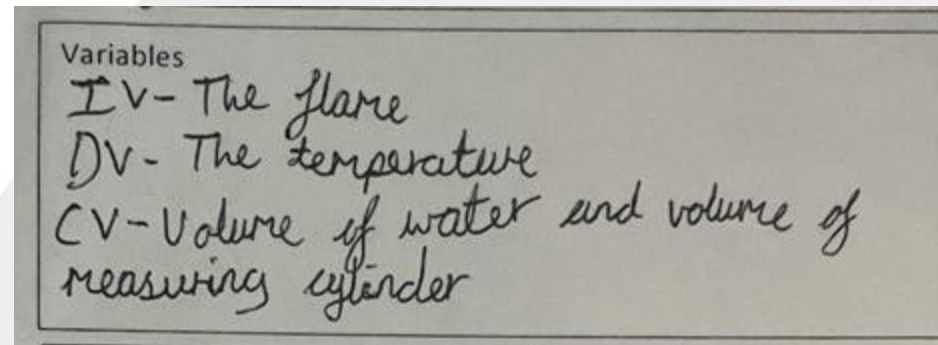 Variables
IV- The flame
DV- The temperature
CV- Volume of water and volume of
measuring cylinder